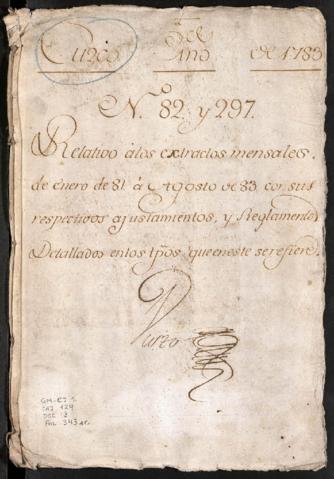 Cuzco Del Año de 1783
N.º 82. y 297.
Relativo álos extractos mensales,
de enero de 81 á Agosto de 83 con sus
respectivos ajustamientos, y Reglamento
Detallados en los tpõs que en este se refiere.
Cuzco
GM-CJ 1.
CAJ 124
DOC 2
FOL 343 ar.